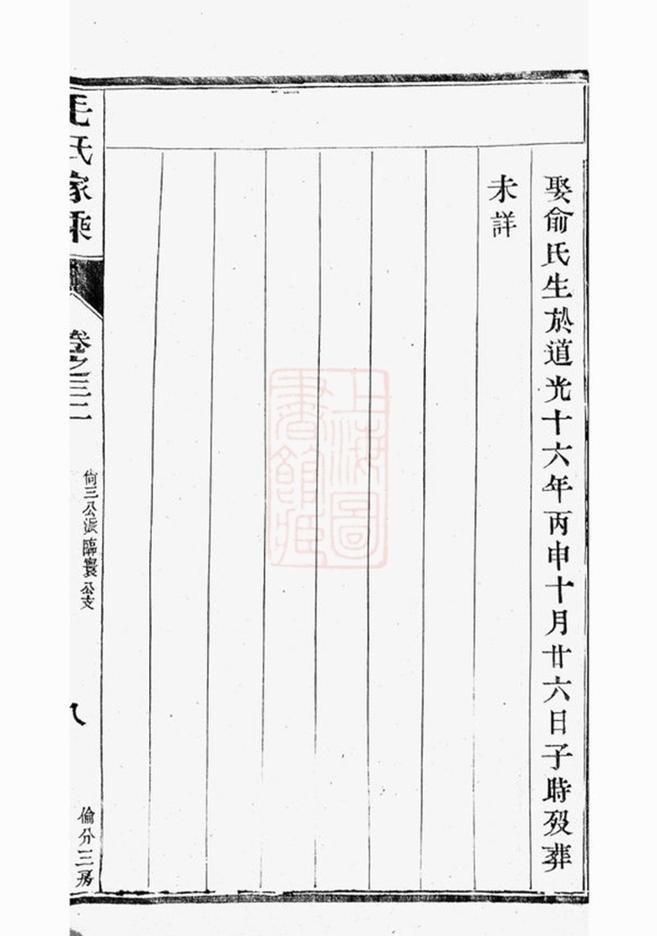 娶俞氏生於道光十六年丙申十月廿六日子時歿葬
未詳
毛氏家乘
卷之三二
尙三公派臨寰公支
八
倫分三房
上海圖
書館藏